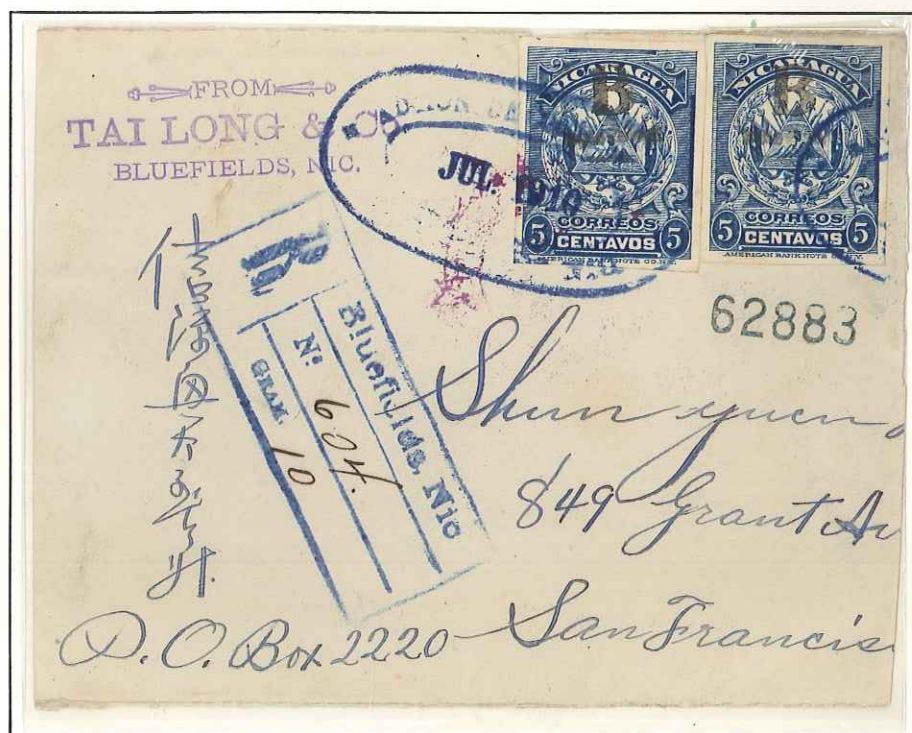 FROM
TAI LONG & Co
BLUEFIELDS, NIC.
JUL. 1910
NICARAGUA
B
CORREOS
5 CENTAVOS 5
AMERICAN BANK NOTE CO. N.Y.
NICARAGUA
B
CORREOS
5 CENTAVOS 5
AMERICAN BANK NOTE CO. N.Y.
62883
R
Bluefields, Nic
Nº 604.
GRAM. 10
Shun yuen
849 Grant Av
San Francis
P. O. Box 2220